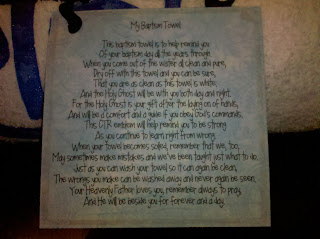 My Baptism Towel
This baptism towel is to help remind you
Of your baptism day all the years through.
When you come out of the water all clean and pure,
Dry off with this towel and you can be sure,
That you are as clean as this towel is white,
And the Holy Ghost will be with you both day and night.
For the Holy Ghost is your gift after the laying on of hands,
And will be a comfort and a guide if you obey God's commands.
This CTR emblem will help remind you to be strong
As you continue to learn right from wrong.
When your towel becomes soiled, remember that we, too,
May sometimes make mistakes and we've been taught just what to do.
Just as you can wash your towel so it can again be clean,
The wrongs you make can be washed away and never again be seen.
Your Heavenly Father loves you, remember always to pray,
And He will be beside you for forever and a day.